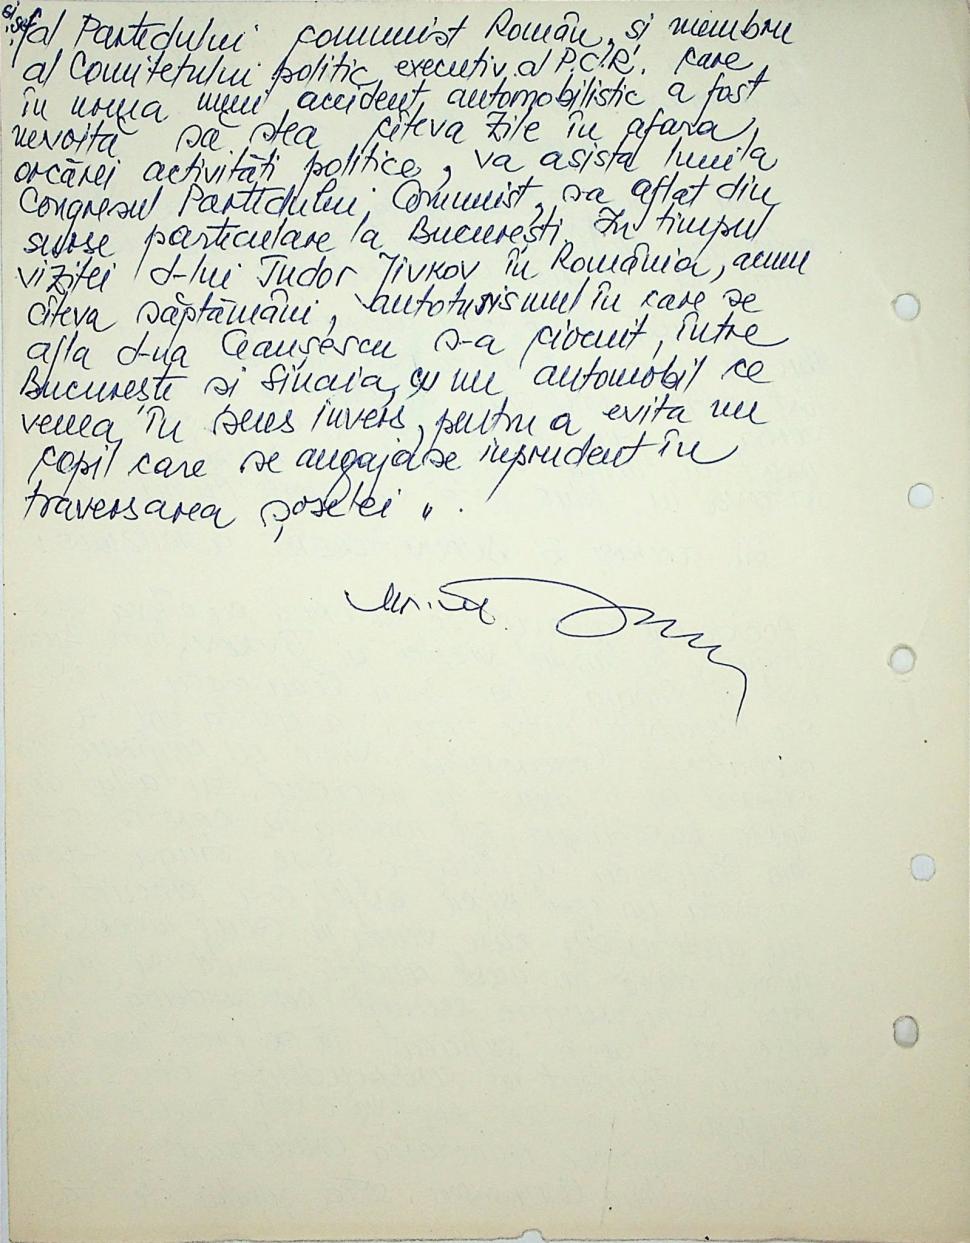 al Partidului comunist Român, și membru
al Comitetului politic executiv al P.C.R. care
în urma unui accident automobilistic a fost
nevoită să stea cîteva zile în afara
orcărei activități politice, va asista luni la
Congresul Partidului Comunist, sa aflat din
surse particulare la București. În timpul
vizitei d-lui Tudor Jivkov în România, acum
cîteva săptămâni, autoturismul în care se
afla d-na Ceaușescu s-a ciocnit, între
București și Sinaia, cu un automobil ce
venea în sens invers, pentru a evita un
copil care se angajase inprudent în
traversarea șoselei ".